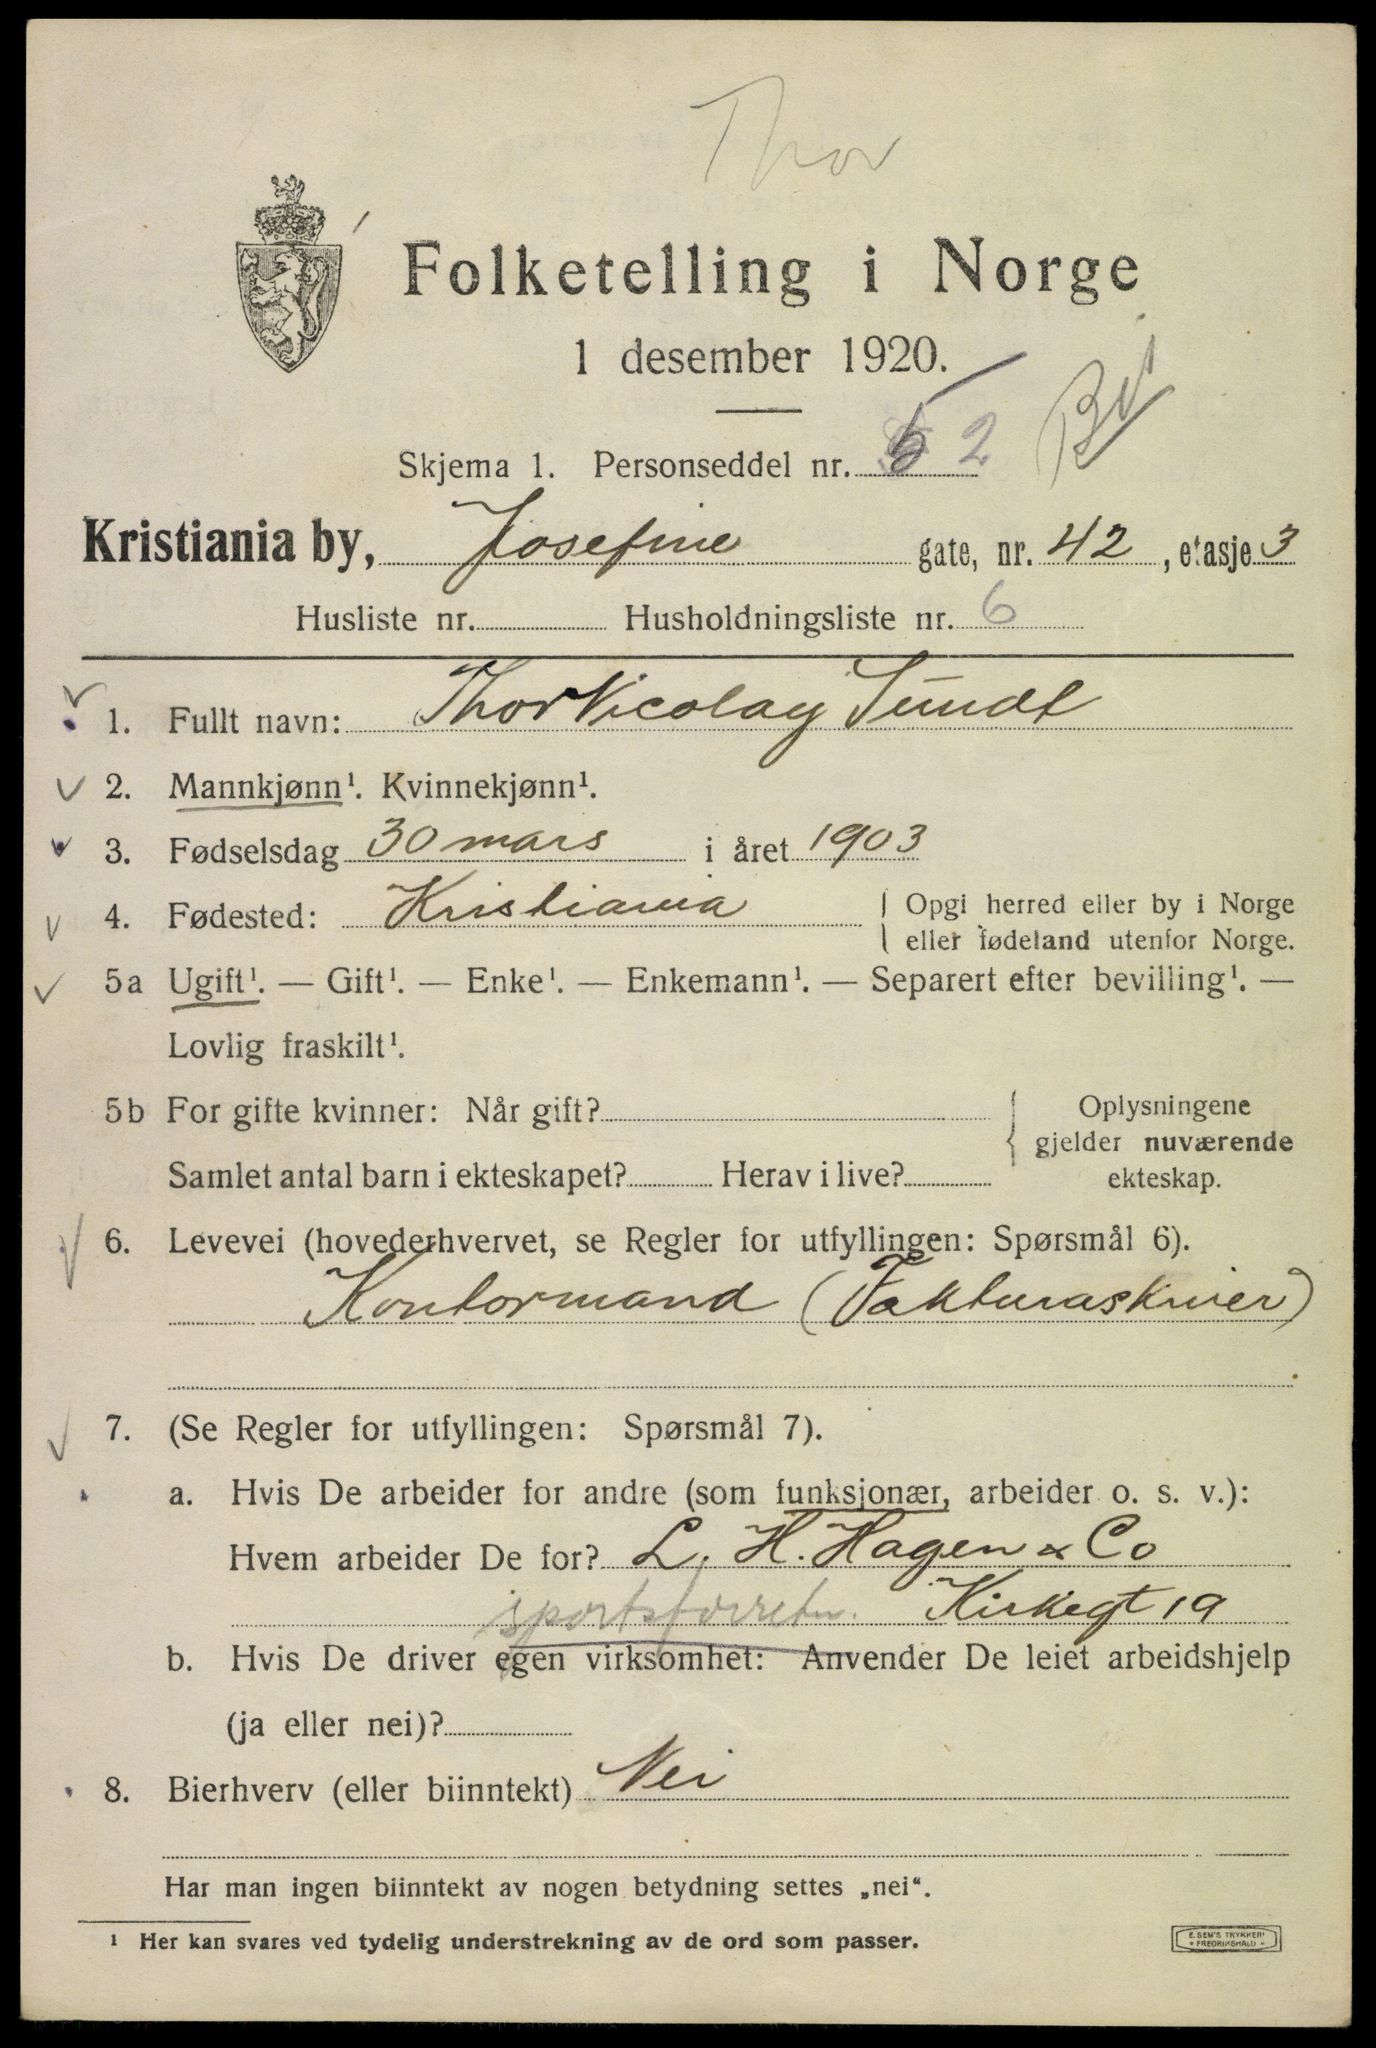 Thor
Folketelling i Norge
1 desember 1920.
Skjema 1. Personseddel nr. 2
Kristiania by, Josefine gate, nr. 42, etasje 3
Husliste nr. Husholdningsliste nr. 6
1. Fullt navn: Thor Nicolay Sundt
2. Mannkjønn¹. Kvinnekjønn¹.
3. Fødselsdag 30 mars i året 1903
4. Fødested: Kristiania { Opgi herred eller by i Norge
eller fødeland utenfor Norge.
5a Ugift¹. — Gift¹. — Enke¹. — Enkemann¹. — Separert efter bevilling¹. —
Lovlig fraskilt¹.
5b For gifte kvinner: Når gift? { Oplysningene
gjelder nuværende
Samlet antal barn i ekteskapet? Herav i live? ekteskap.
6. Levevei (hovederhvervet, se Regler for utfyllingen: Spørsmål 6).
Kontormand (Fakturaskriver)
7. (Se Regler for utfyllingen: Spørsmål 7).
a. Hvis De arbeider for andre (som funksjonær, arbeider o. s. v.):
Hvem arbeider De for? L. H. Hagen & Co
sportsforretn. Kirkegt 19
b. Hvis De driver egen virksomhet: Anvender De leiet arbeidshjelp
(ja eller nei)?
8. Bierhverv (eller biinntekt) Nei
Har man ingen biinntekt av nogen betydning settes „nei“.
¹ Her kan svares ved tydelig understrekning av de ord som passer.
E. SEM'S TRYKKERI
FREDRIKSHALD